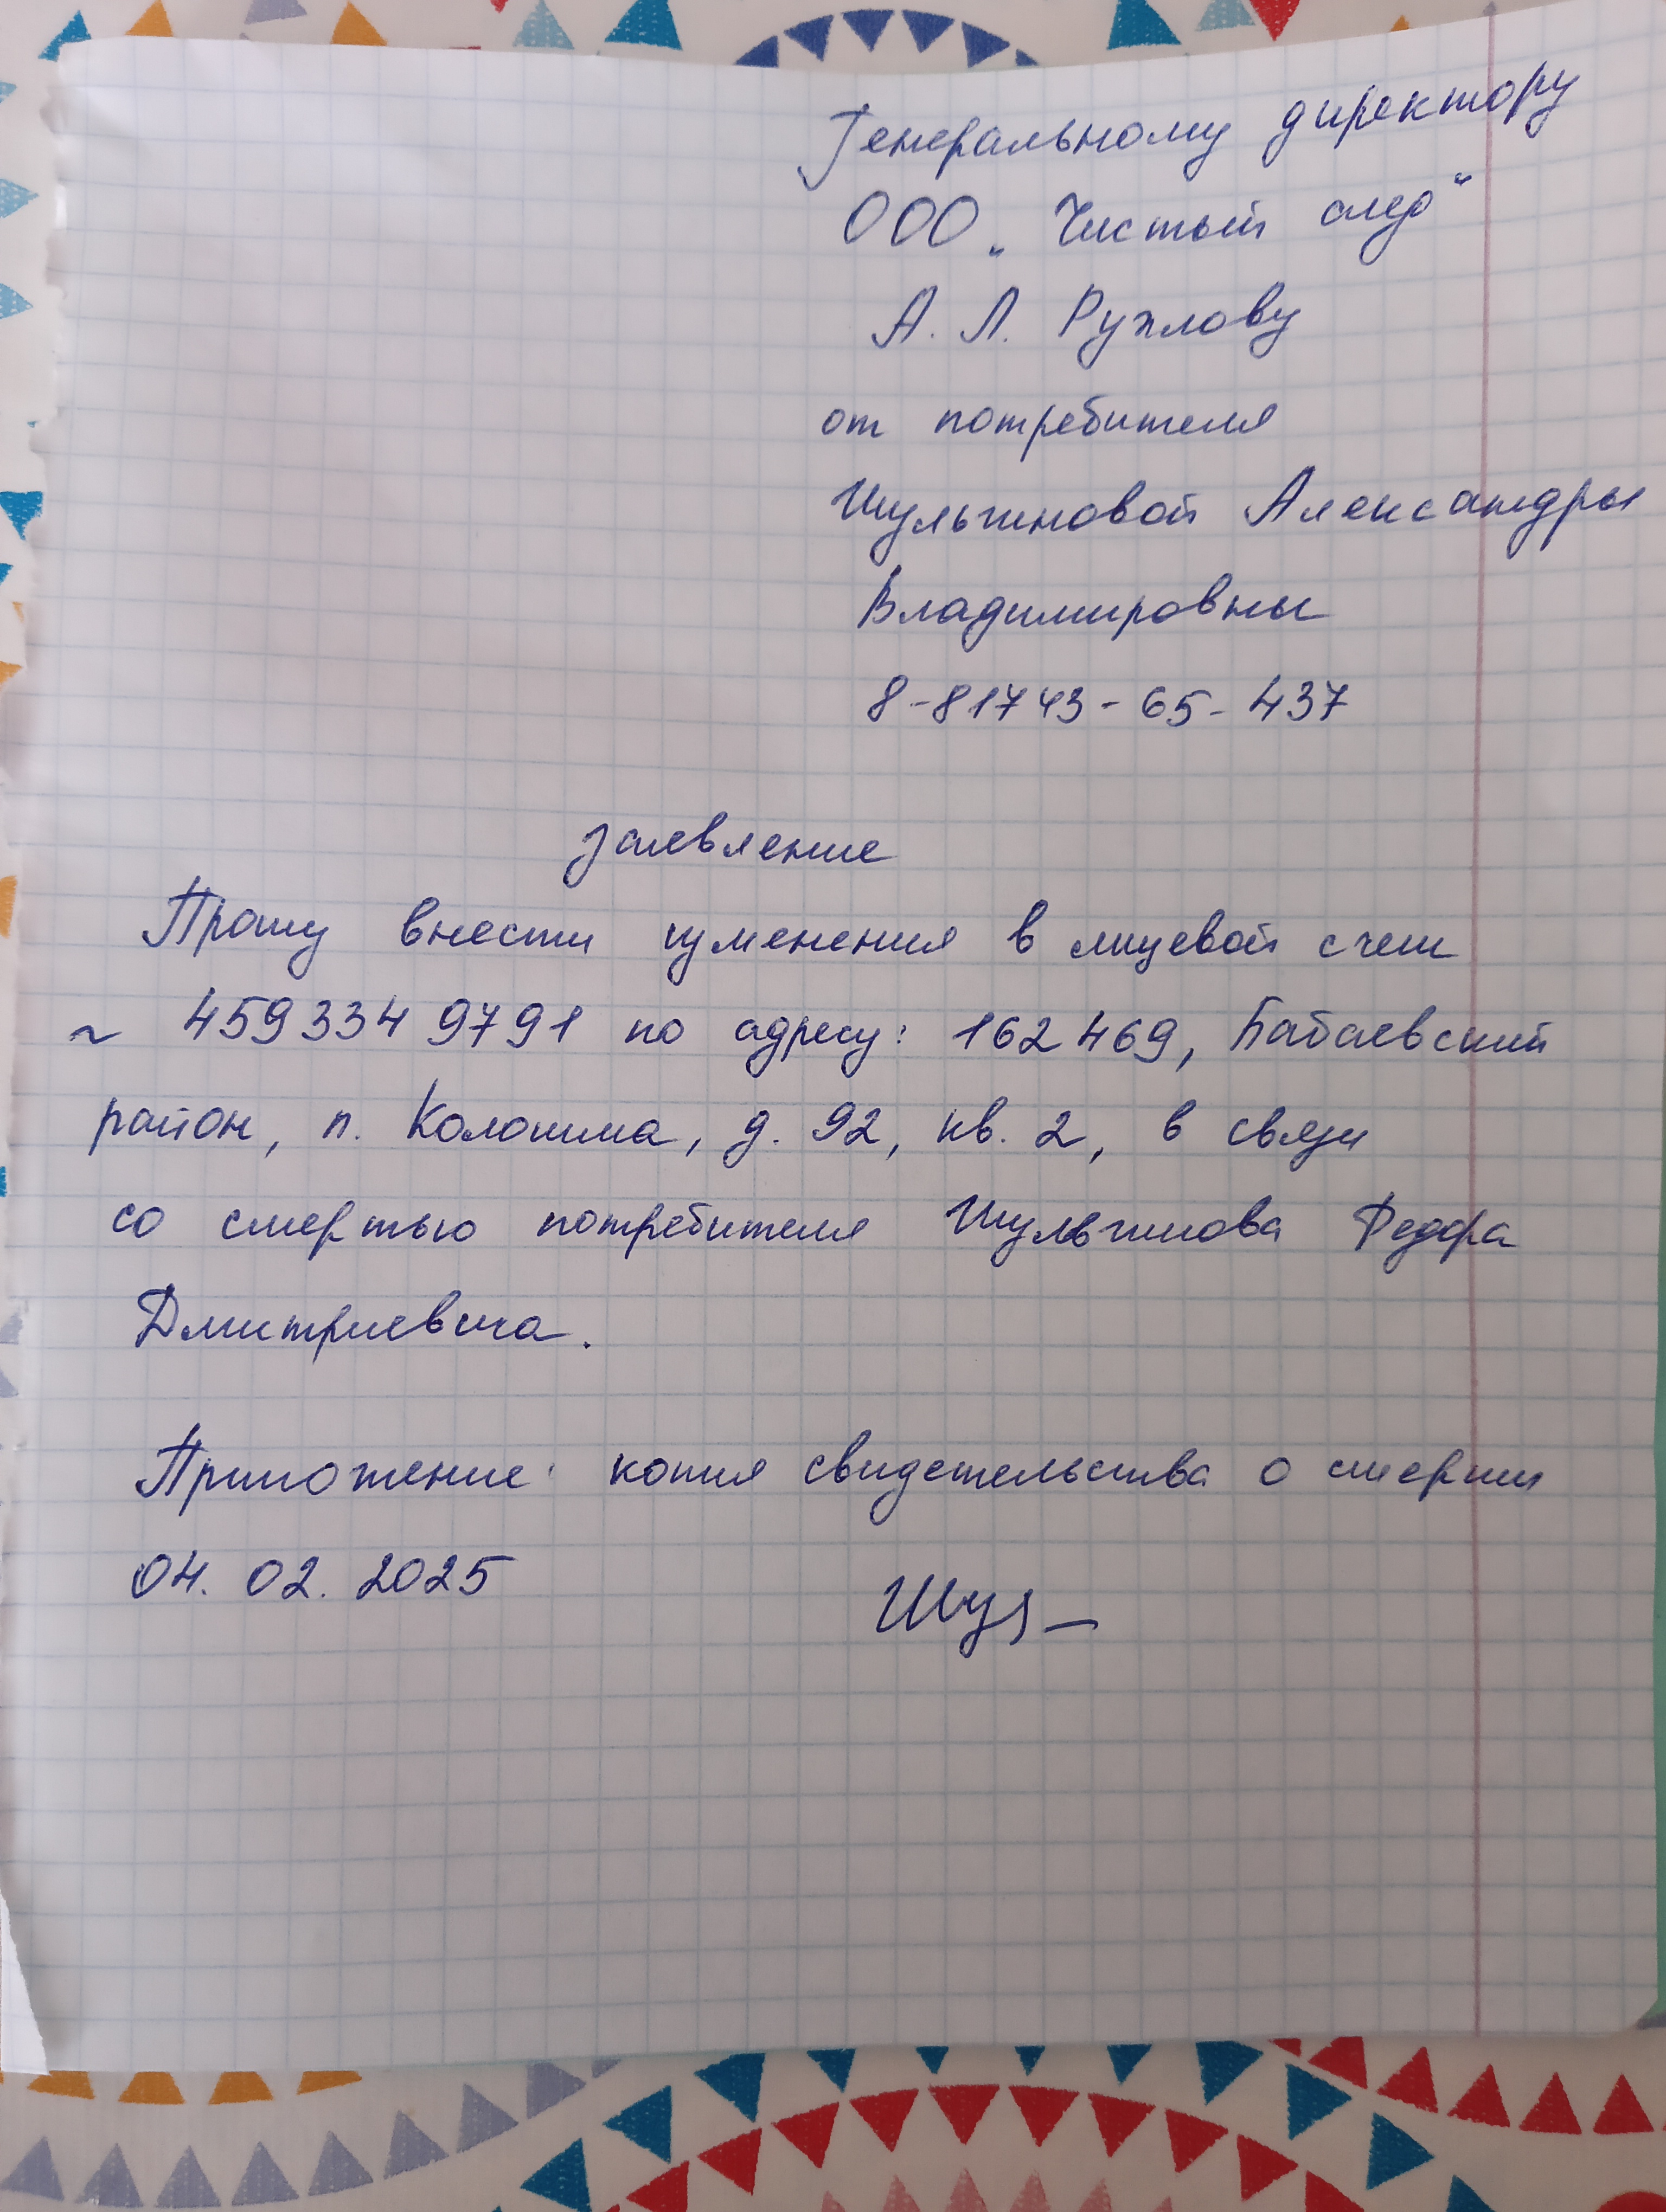 Генеральному директору
ООО „Чистый след“
А. Л. Рухлову
от потребителя
Шульгиновой Александры
Владимировны
8-81743-65-437
заявление
Прошу внести изменения в лицевой счет
~ 459334 9791 по адресу: 162469, Бабаевский
район, п. Колошма, д. 92, кв. 2, в связи
со смертью потребителя Шульгинова Федора
Дмитриевича.
Приложение: копия свидетельства о смерти
04. 02. 2025